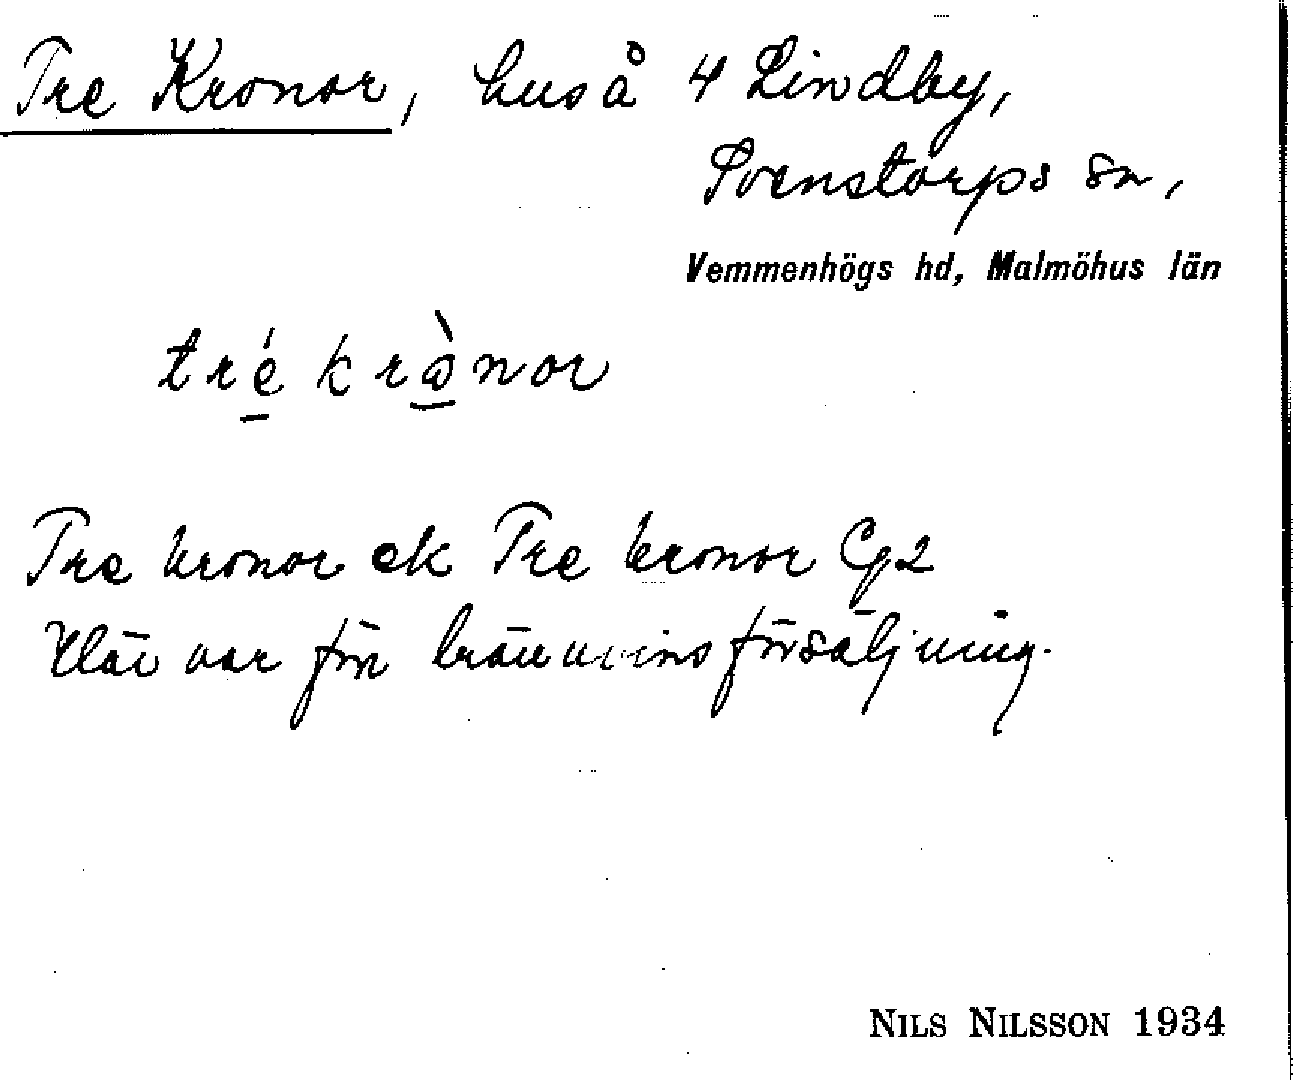 Tre Kronor, hus å 4 Lindby,
Svenstorps sn,
Vemmenhögs hd, Malmöhus län
tré krònor
Tre kronor ek Tre kronor Cg2
Här var för brännvinsförsäljning.
NILS NILSSON 1934